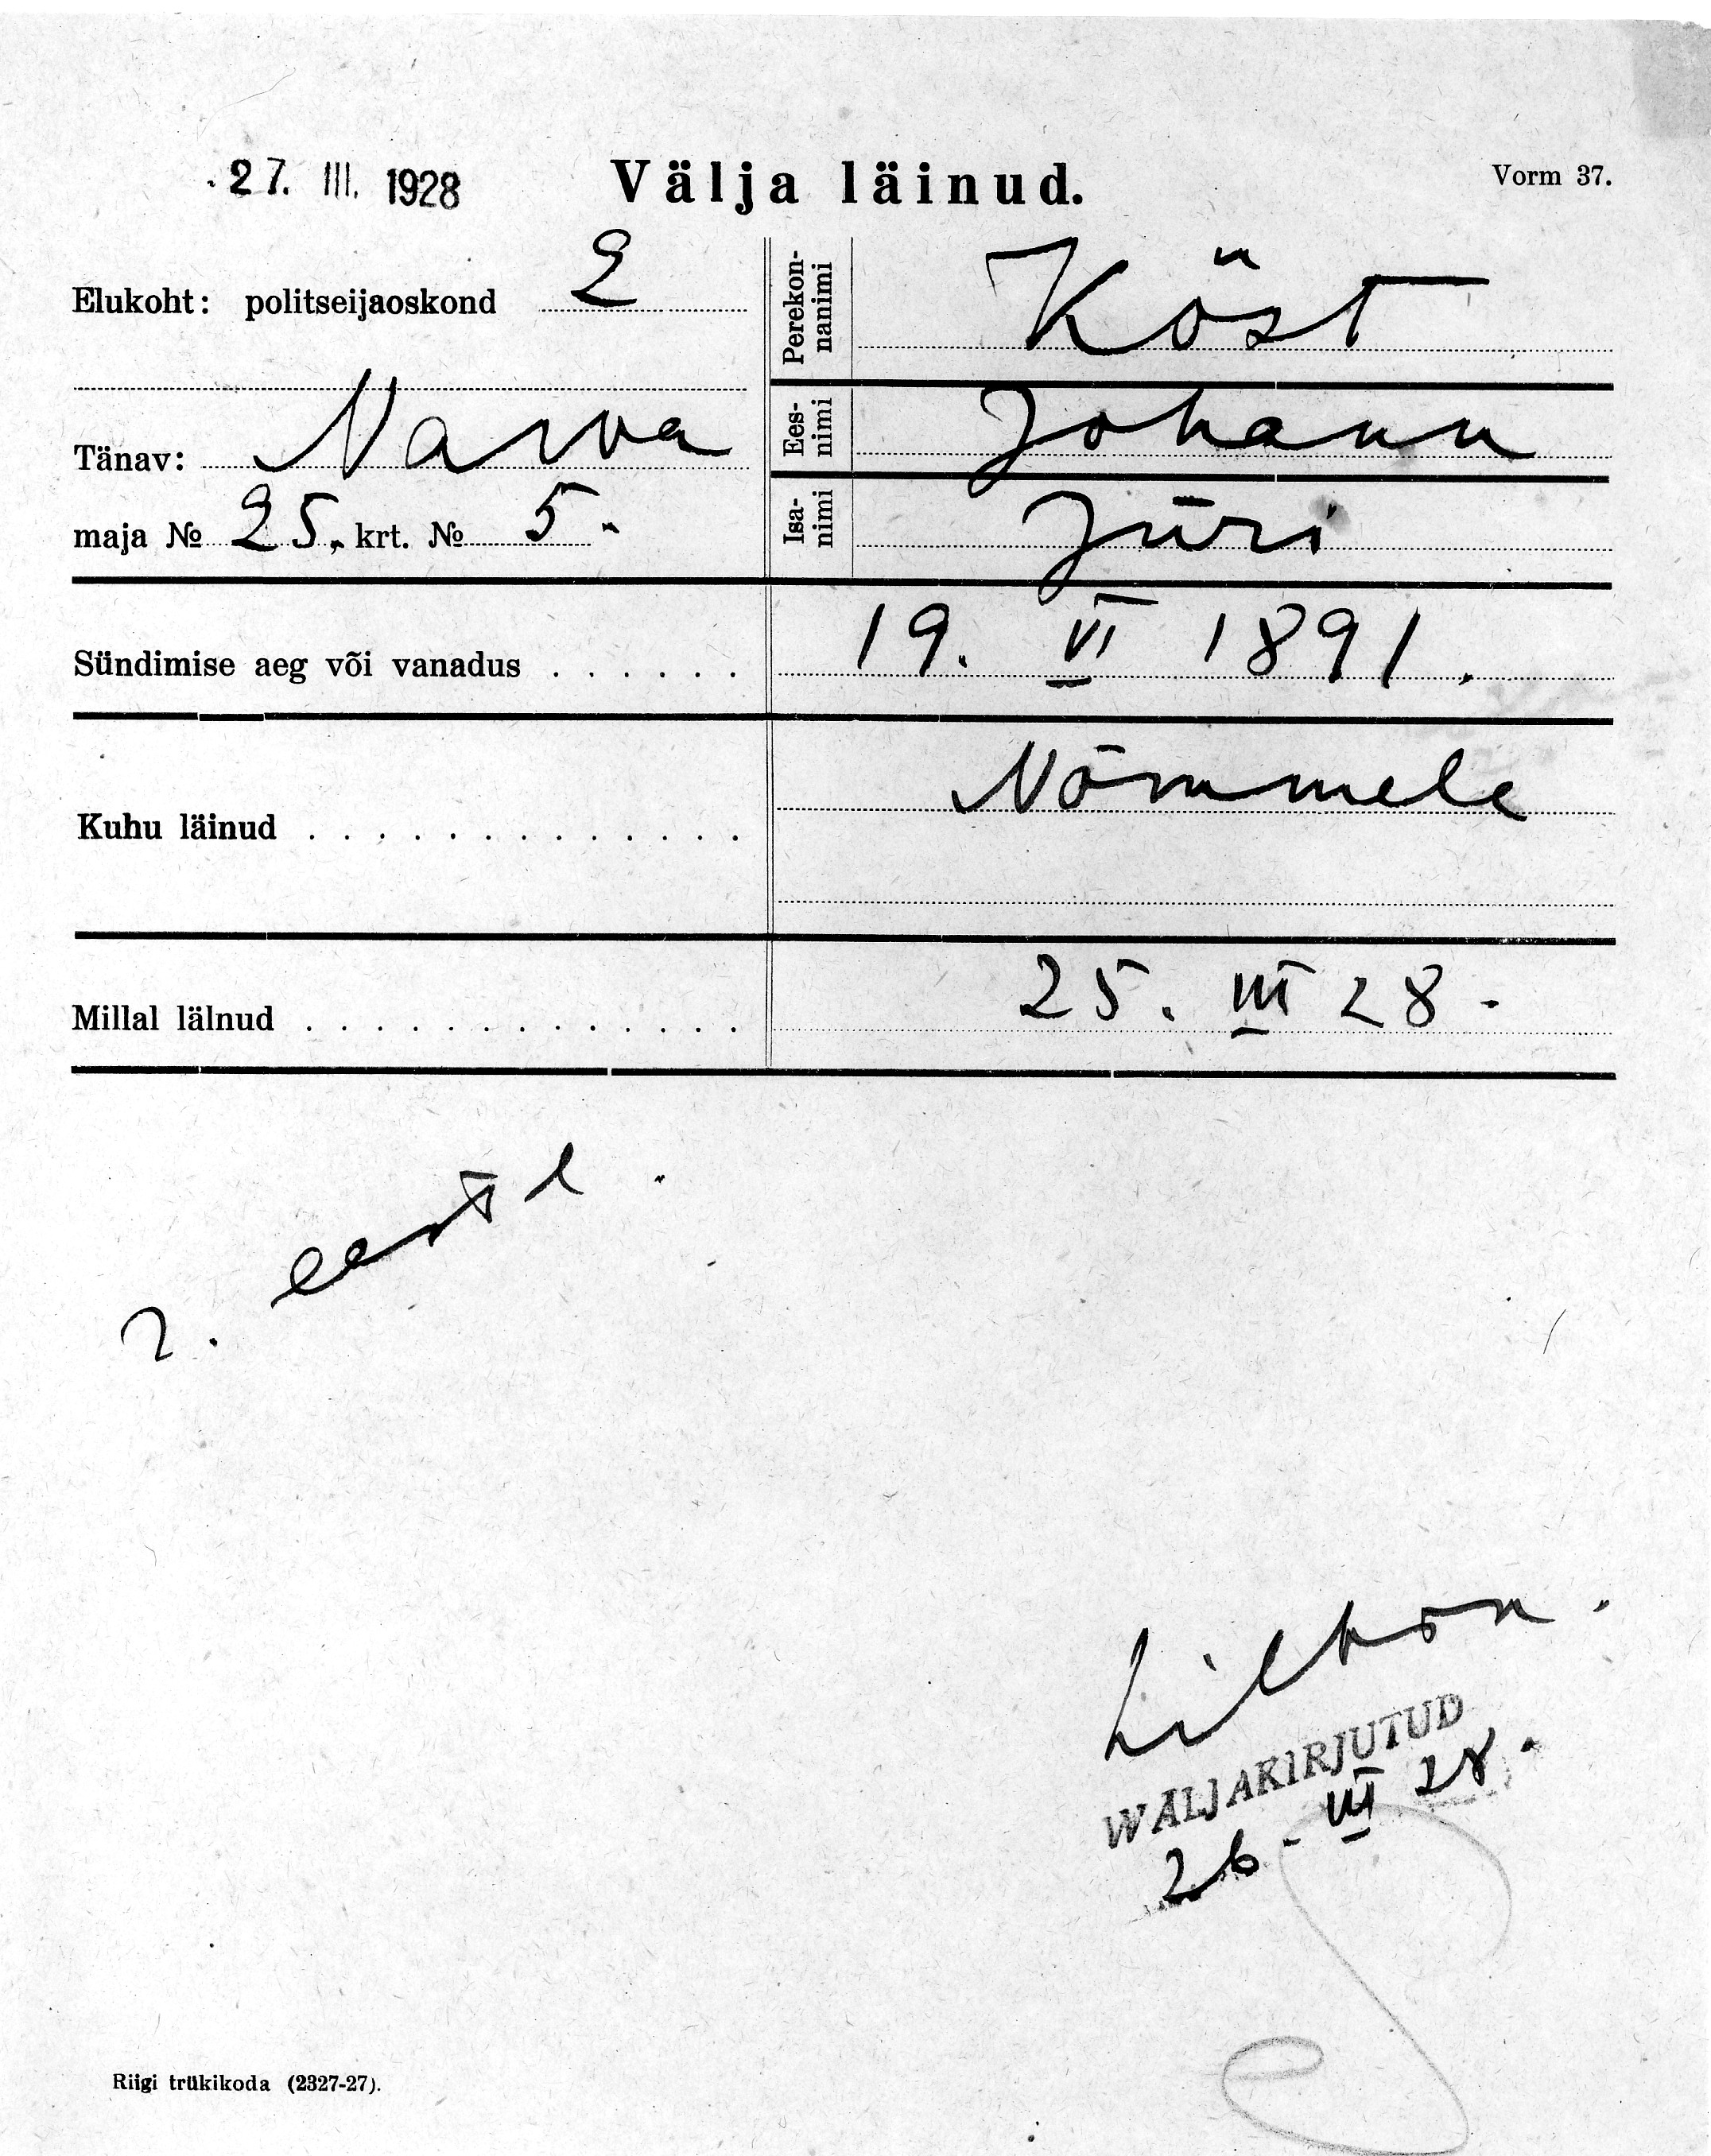 27. III. 1928 Välja läinud. Vorm 37.
Elukoht: politseijaoskond 2
Perekon-
nanimi Köst
Tänav: Narva
Ees-
nimi Johann
maja № 25. krt. № 5.
Isa-
nimi Jüri
Sündimise aeg või vanadus . . . . . . 19. VI 1891.
Kuhu läinud . . . . . . . . . . . . . Nõmmele
Millal läinud . . . . . . . . . . . . . 25. III 28.
WALJAKIRJUTUD
26. III 28.
Riigi trükikoda (2327-27).